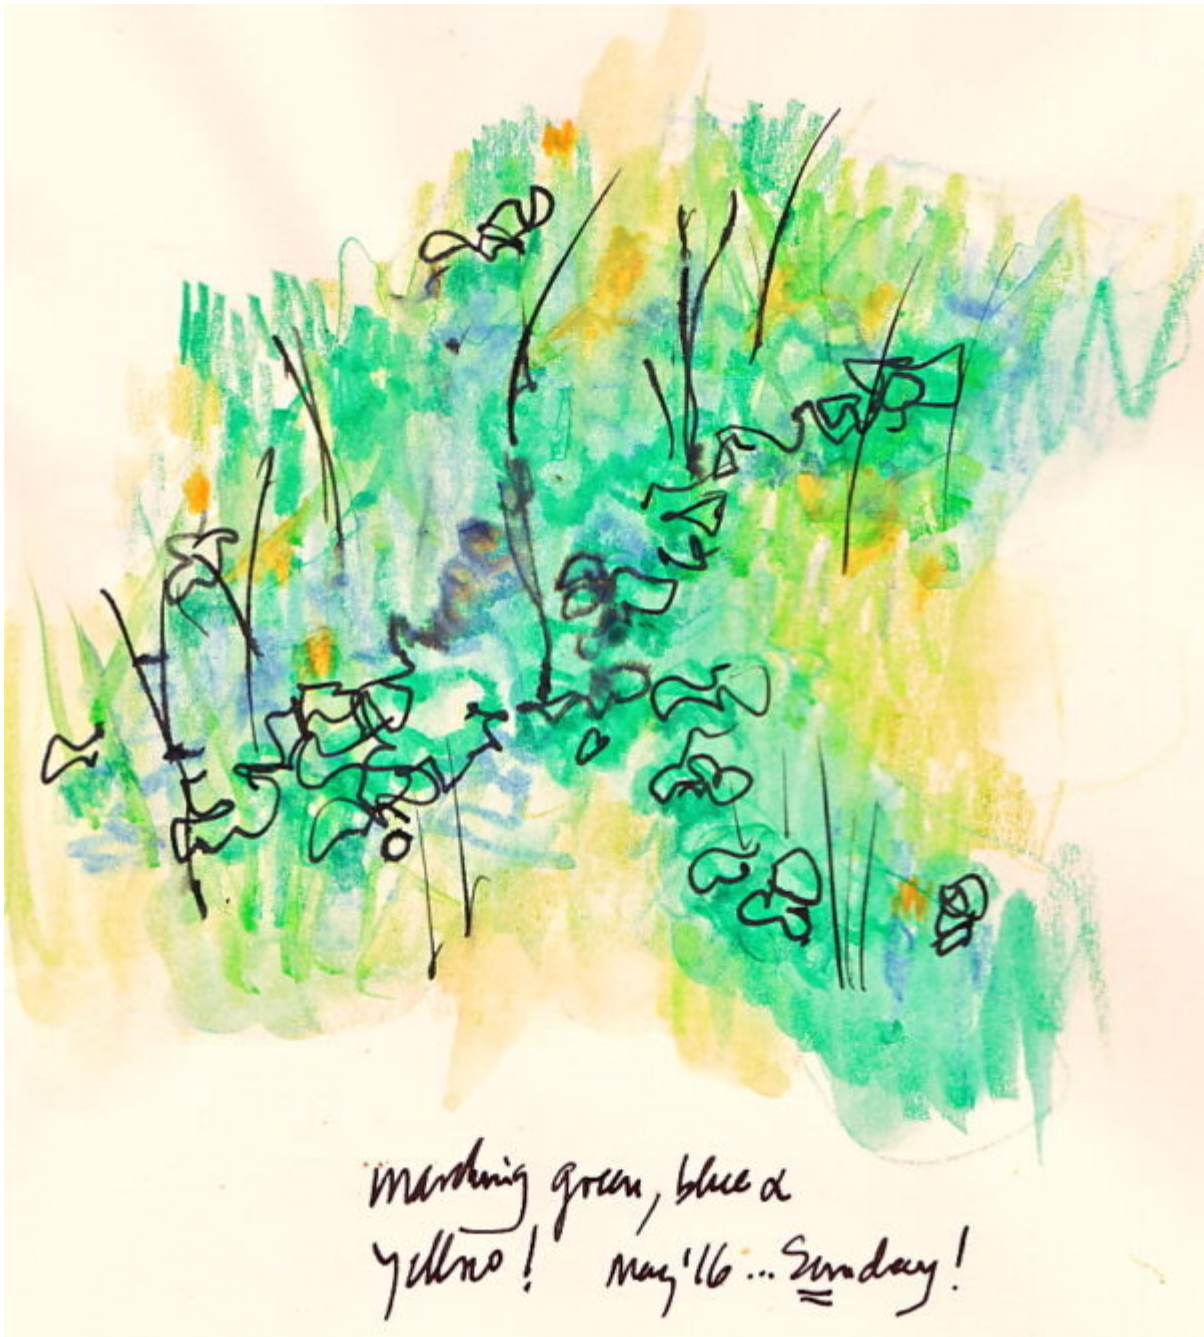 marching green, blue &
yellow! May '16 ... Sunday!